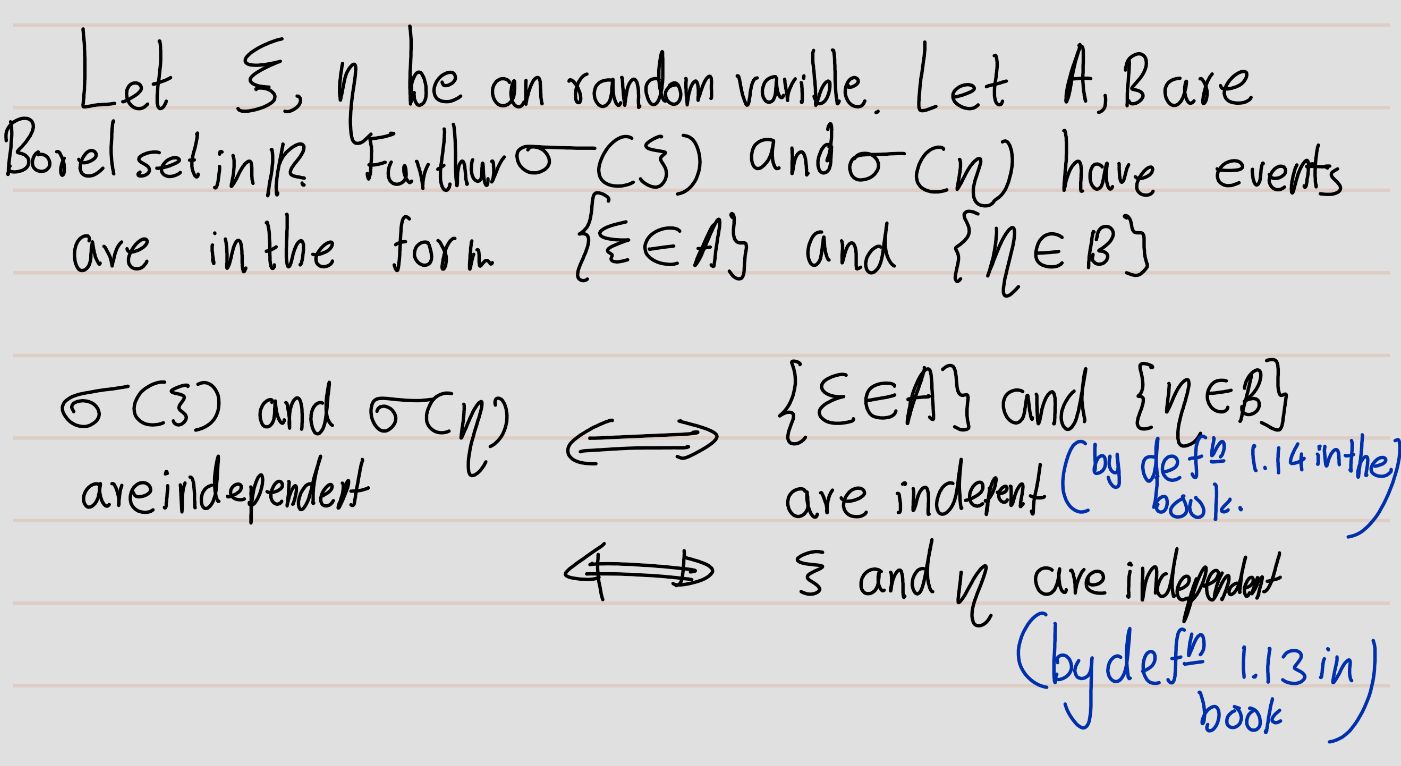 Let ξ, η be an random varible. Let A, B are
Borel set in ℝ. Furthur σ(ξ) and σ(η) have events
are in the form {ξ ∈ A} and {η ∈ B}
σ(ξ) and σ(η) ⟺ {ξ ∈ A} and {η ∈ B}
are independent are indepent (by defⁿ 1.14 in the
book.)
⟺ ξ and η are independent
(by defⁿ 1.13 in
book)